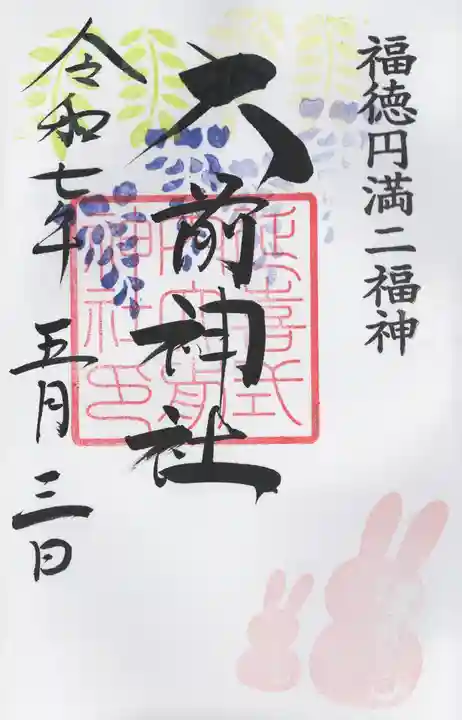 福徳円満二福神
大前神社
延喜式
内大前
神社印
令和七年 五月 三日